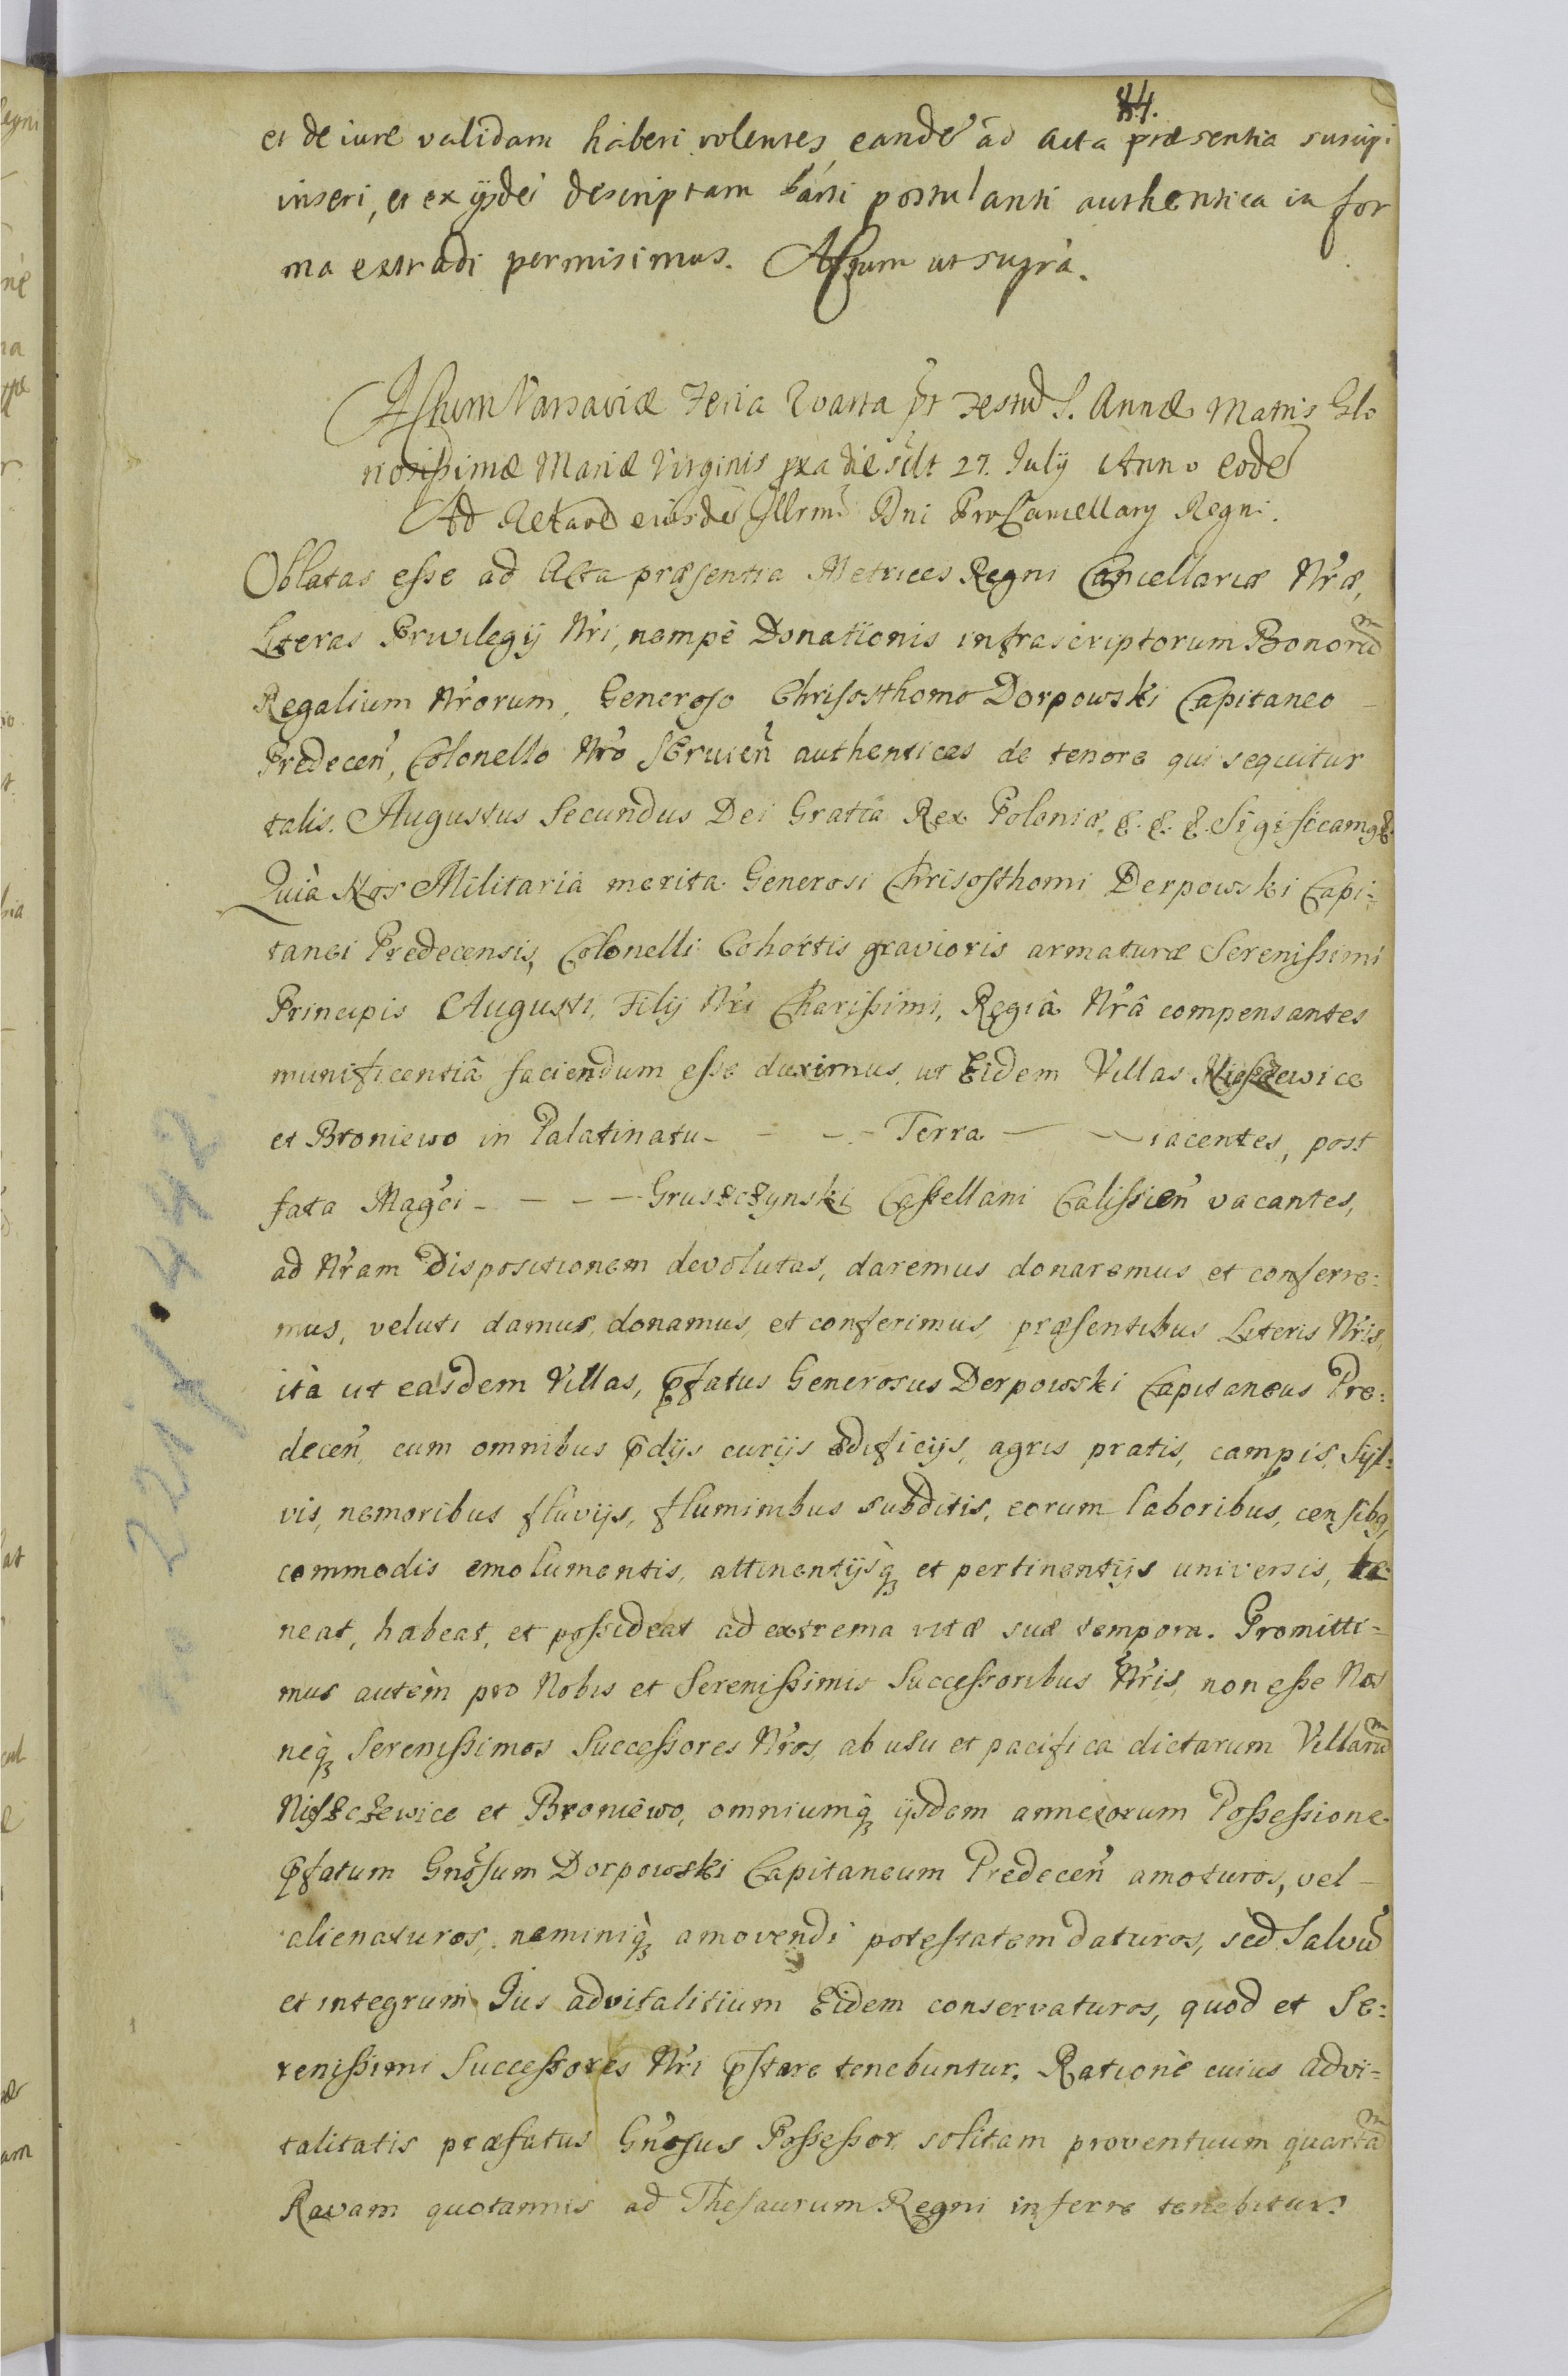 84.
et de iure validam haberi volentes, eandẽ ad Acta præsentia suscipi
inseri, et ex ijsdẽ descriptam parti postulanti authentica in for
ma extradi permisimus. Actum ut supra.
Actum Varsaviæ Feria Quarta pt Festũ S. Annæ Matris Glo
riosissimæ Mariæ Virginis pxa die scilt 27. Julij Anno eodẽ
Ad Relaõe eiusdẽ Illrmi Dni ProCancellary Regni.
Oblatas esse ad Acta præsentia Metrices Regni Cancellariæ Nræ,
Literas Privilegij Nri, nempè Donationis infrascriptorum Bonorũm
Regalium Nrorum, Generoso Chrisosthomo Dorpowski Capitaneo
Predeceñ, Colonello Nro Servieñ authenticas de tenore qui sequitur
talis. Augustus Secundus Dei Gratia Rex Poloniæ, &. &. &. Sigificamg &.
Quià Nos Militaria merita Generosi Chrisosthomi Derpowski Capi:
tanei Predecensis, Colonelli Cohortis gravioris armaturæ Serenissimi
Principis Augusti, Filij Nri Charissimi, Regiâ Nrâ compensantes
munificentiâ faciendum esse duximus, ut Eidem Villas Niszczewice
et Broniewo in Palatinatu - - - - Terra - - iacentes, post
fata Magci - - - - Gruszczynski Castellani Calissieñ vacantes,
ad Nram Dispositionem devolutas, daremus donaremus et conferre:
mus, veluti damus, donamus, et conferimus præsentibus Literis Nris,
ità ut easdem Villas, pfatus Generosus Derpowski Capitaneus Pre:
deceñ, cum omnibus pdijs curijs ædificijs, agris pratis, campis, Syl:
vis, nemoribus fluvijs, fluminibus subditis, eorum laboribus, censibg,
commodis emolumentis, attinentijsq et pertinentijs universis, te:
neat, habeat, et possideat ad extrema vitæ suæ tempora. Promitti=
mus autèm pro Nobis et Serenissimis Successoribus Nris, non esse Nos
neq Serenissimos Successores Nros, ab usu et pacifica dictarum Villarũm
Niszczewice et Broniewo, omniumq ijsdem annexorum Possessione
pfatum Gnosum Dorpowski Capitaneum Predeceñ amoturos, vel
alienaturos, neminiq amovendi potestatem daturos, sed Salvũ
et integrum Jus advitalitium Eidem conservaturos, quod et Se:
renissimi Successores Nri pstare tenebuntur. Ratione cuius advi=
talitatis præfatus Gnosus Possessor, solitam proventuum quartãm
Ravam quotannis ad Thesaurum Regni inferre tenebitur.